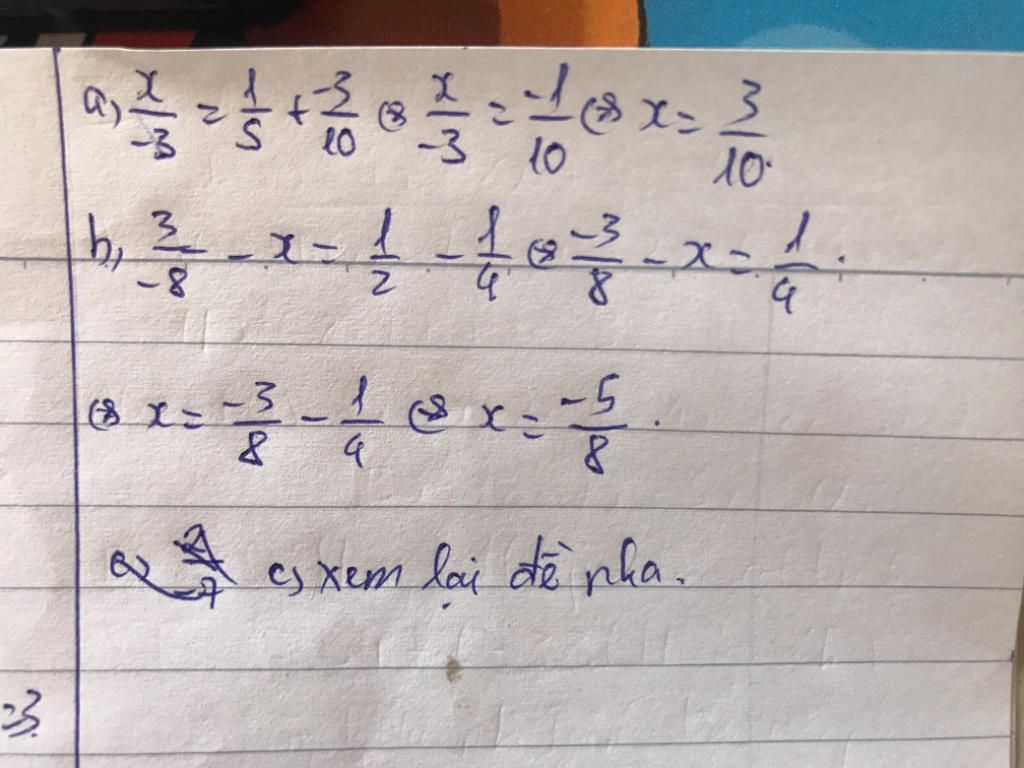 a, x/-3 = 1/5 + -3/10 ⇔ x/-3 = -1/10 ⇔ x = 3/10.
b, 3/-8 - x = 1/2 - 1/4 ⇔ -3/8 - x = 1/4.
⇔ x = -3/8 - 1/4 ⇔ x = -5/8.
c, xem lại đề nha.
=3